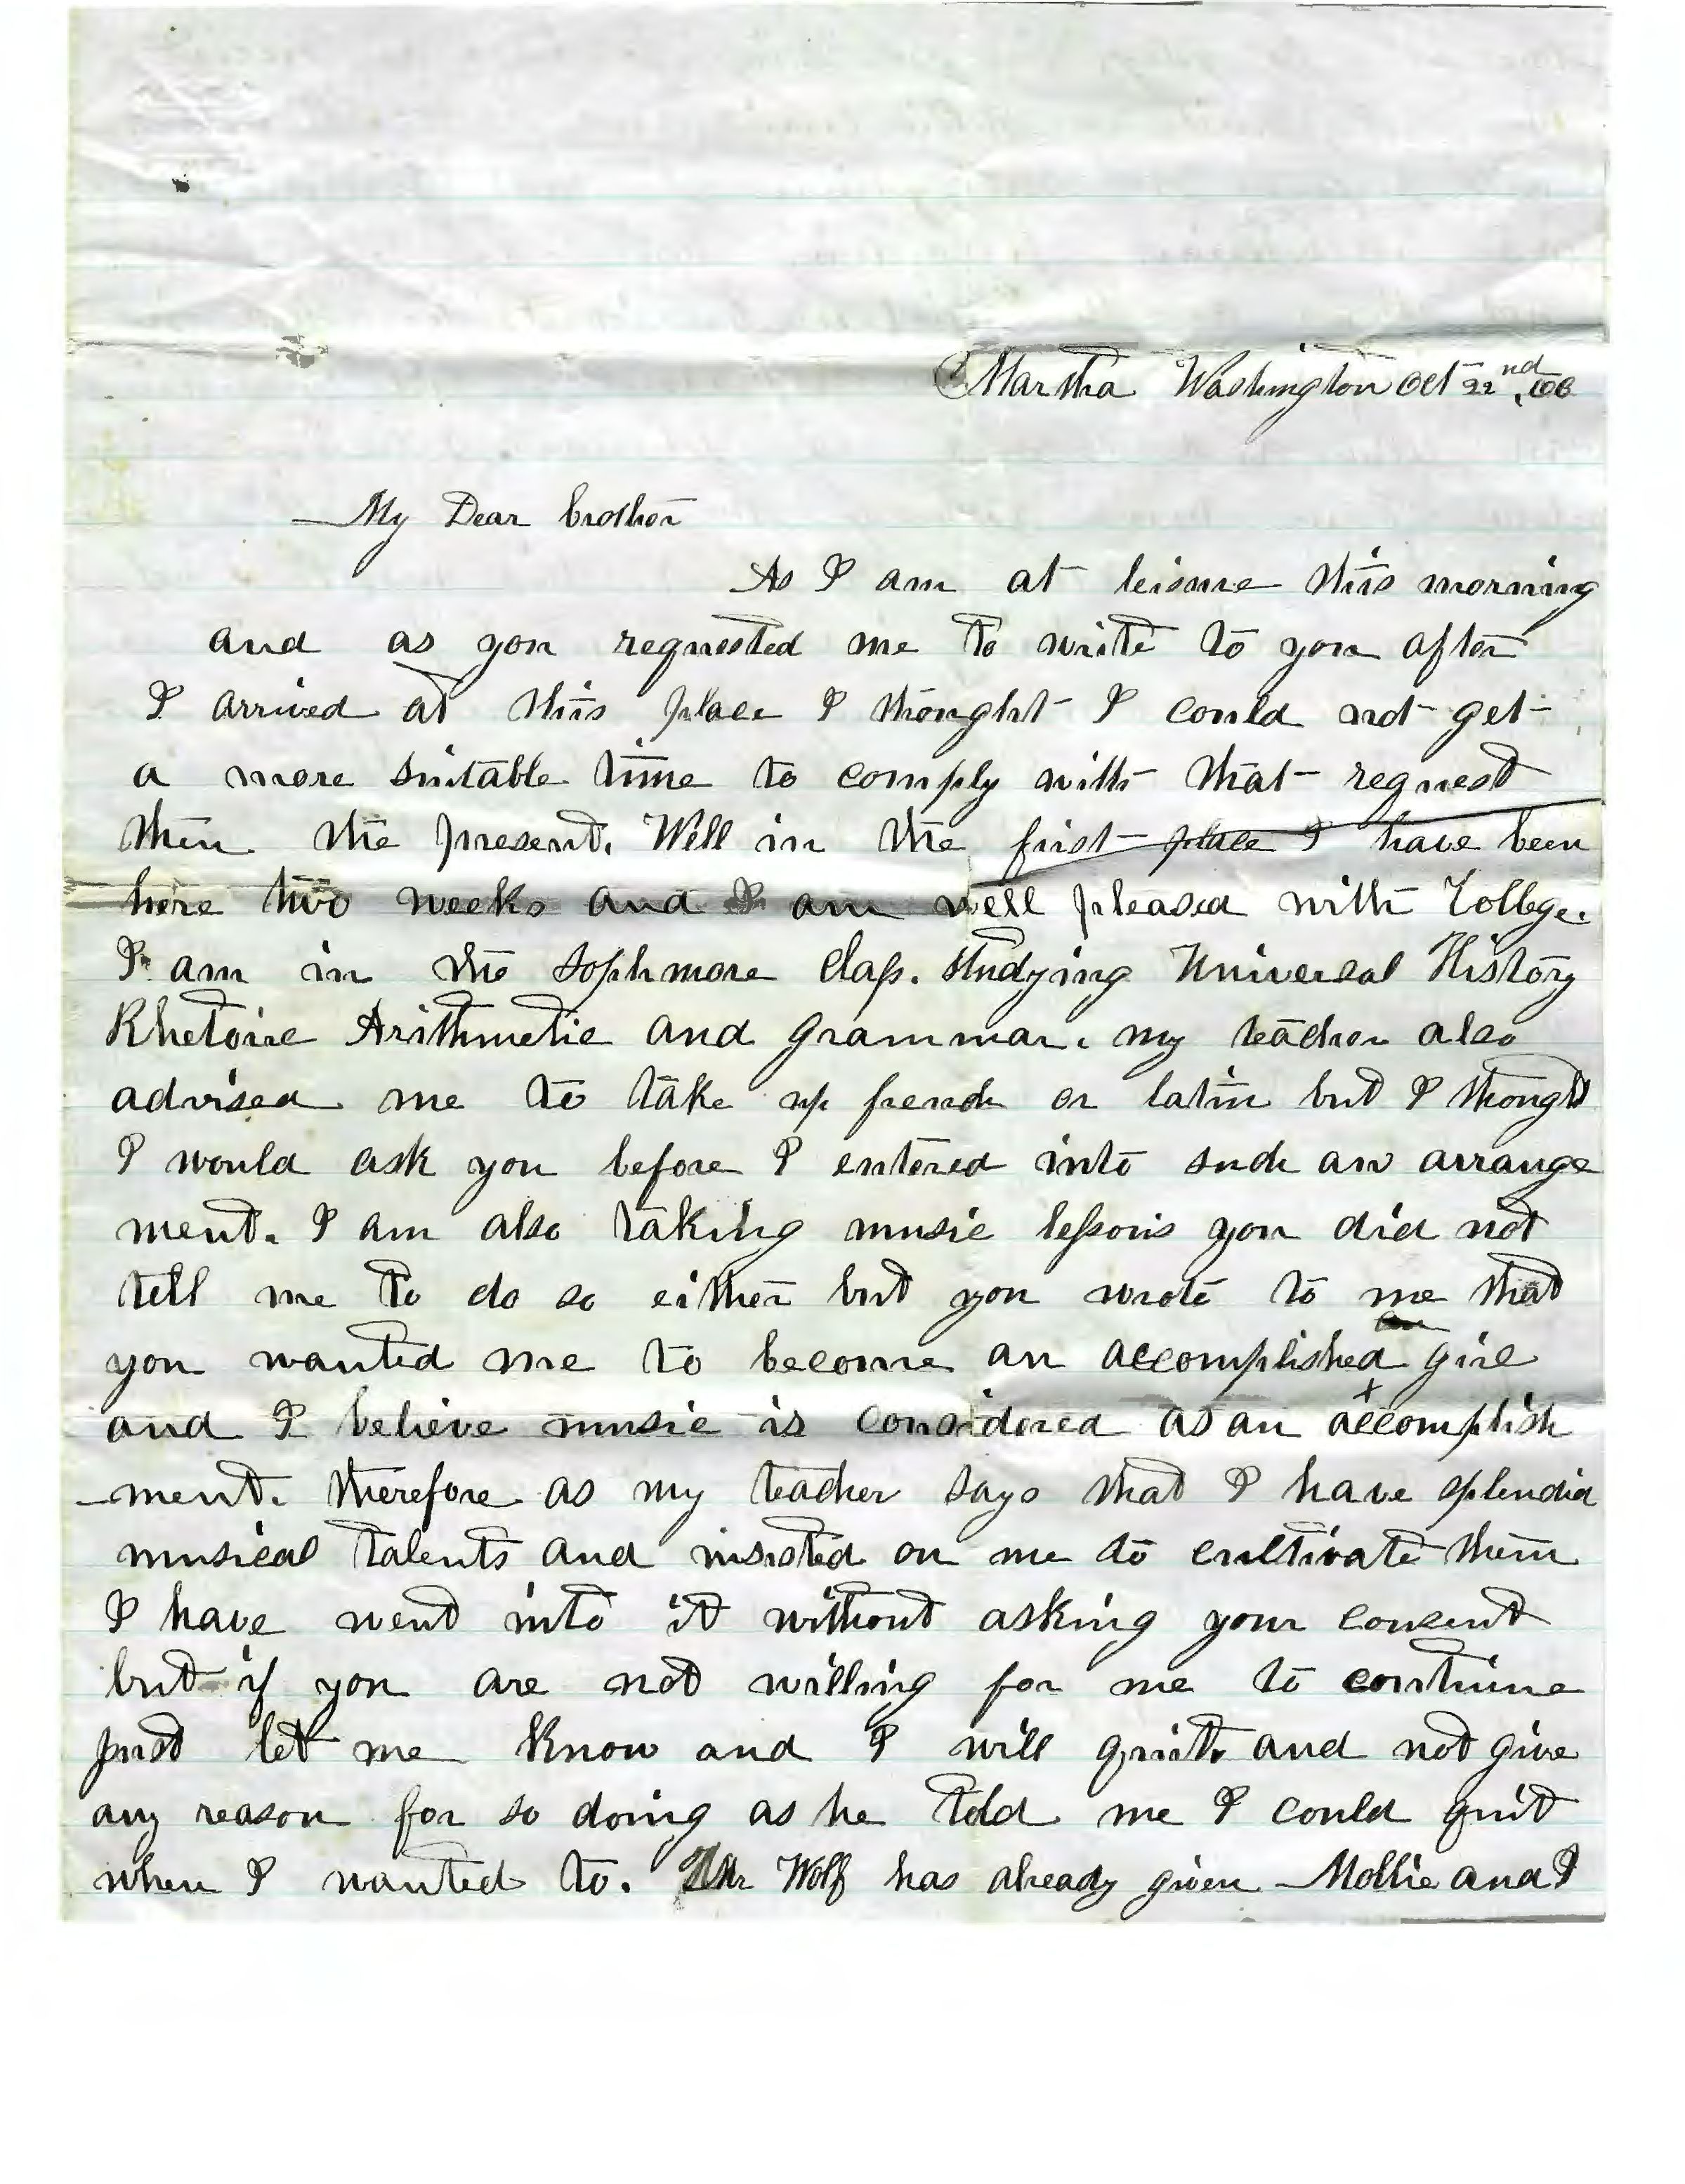 Martha Washington Oct 22nd,
My Dear brother
As I am at leisure this morning
and as you requested me to write to you after
I arrived at this place I thought I could not get
a more suitable time to comply with that request
then the present. Well in the first place I have been
here two weeks and I am well pleased with College.
I am in the Sophmore Class. Studying Universal History
Rhetoric Arithmetic and grammar. my teacher also
advised me to take up french or latin but I thought
I would ask you before I entered into such an arrange
ment. I am also taking music lessons you did not
tell me to do so either but you wrote to me that
you wanted me to become an accomplished girl
and I believe music is considered as an accomplish
-ment. therefore as my teacher says that I have splendid
musical talents and insisted on me to cultivate them
I have went into it without asking your consent
but if you are not willing for me to continue
just let me know and I will quit. and not give
any reason for so doing as he told me I could quit
when I wanted to. Mr Wolf has already given Mollie and I